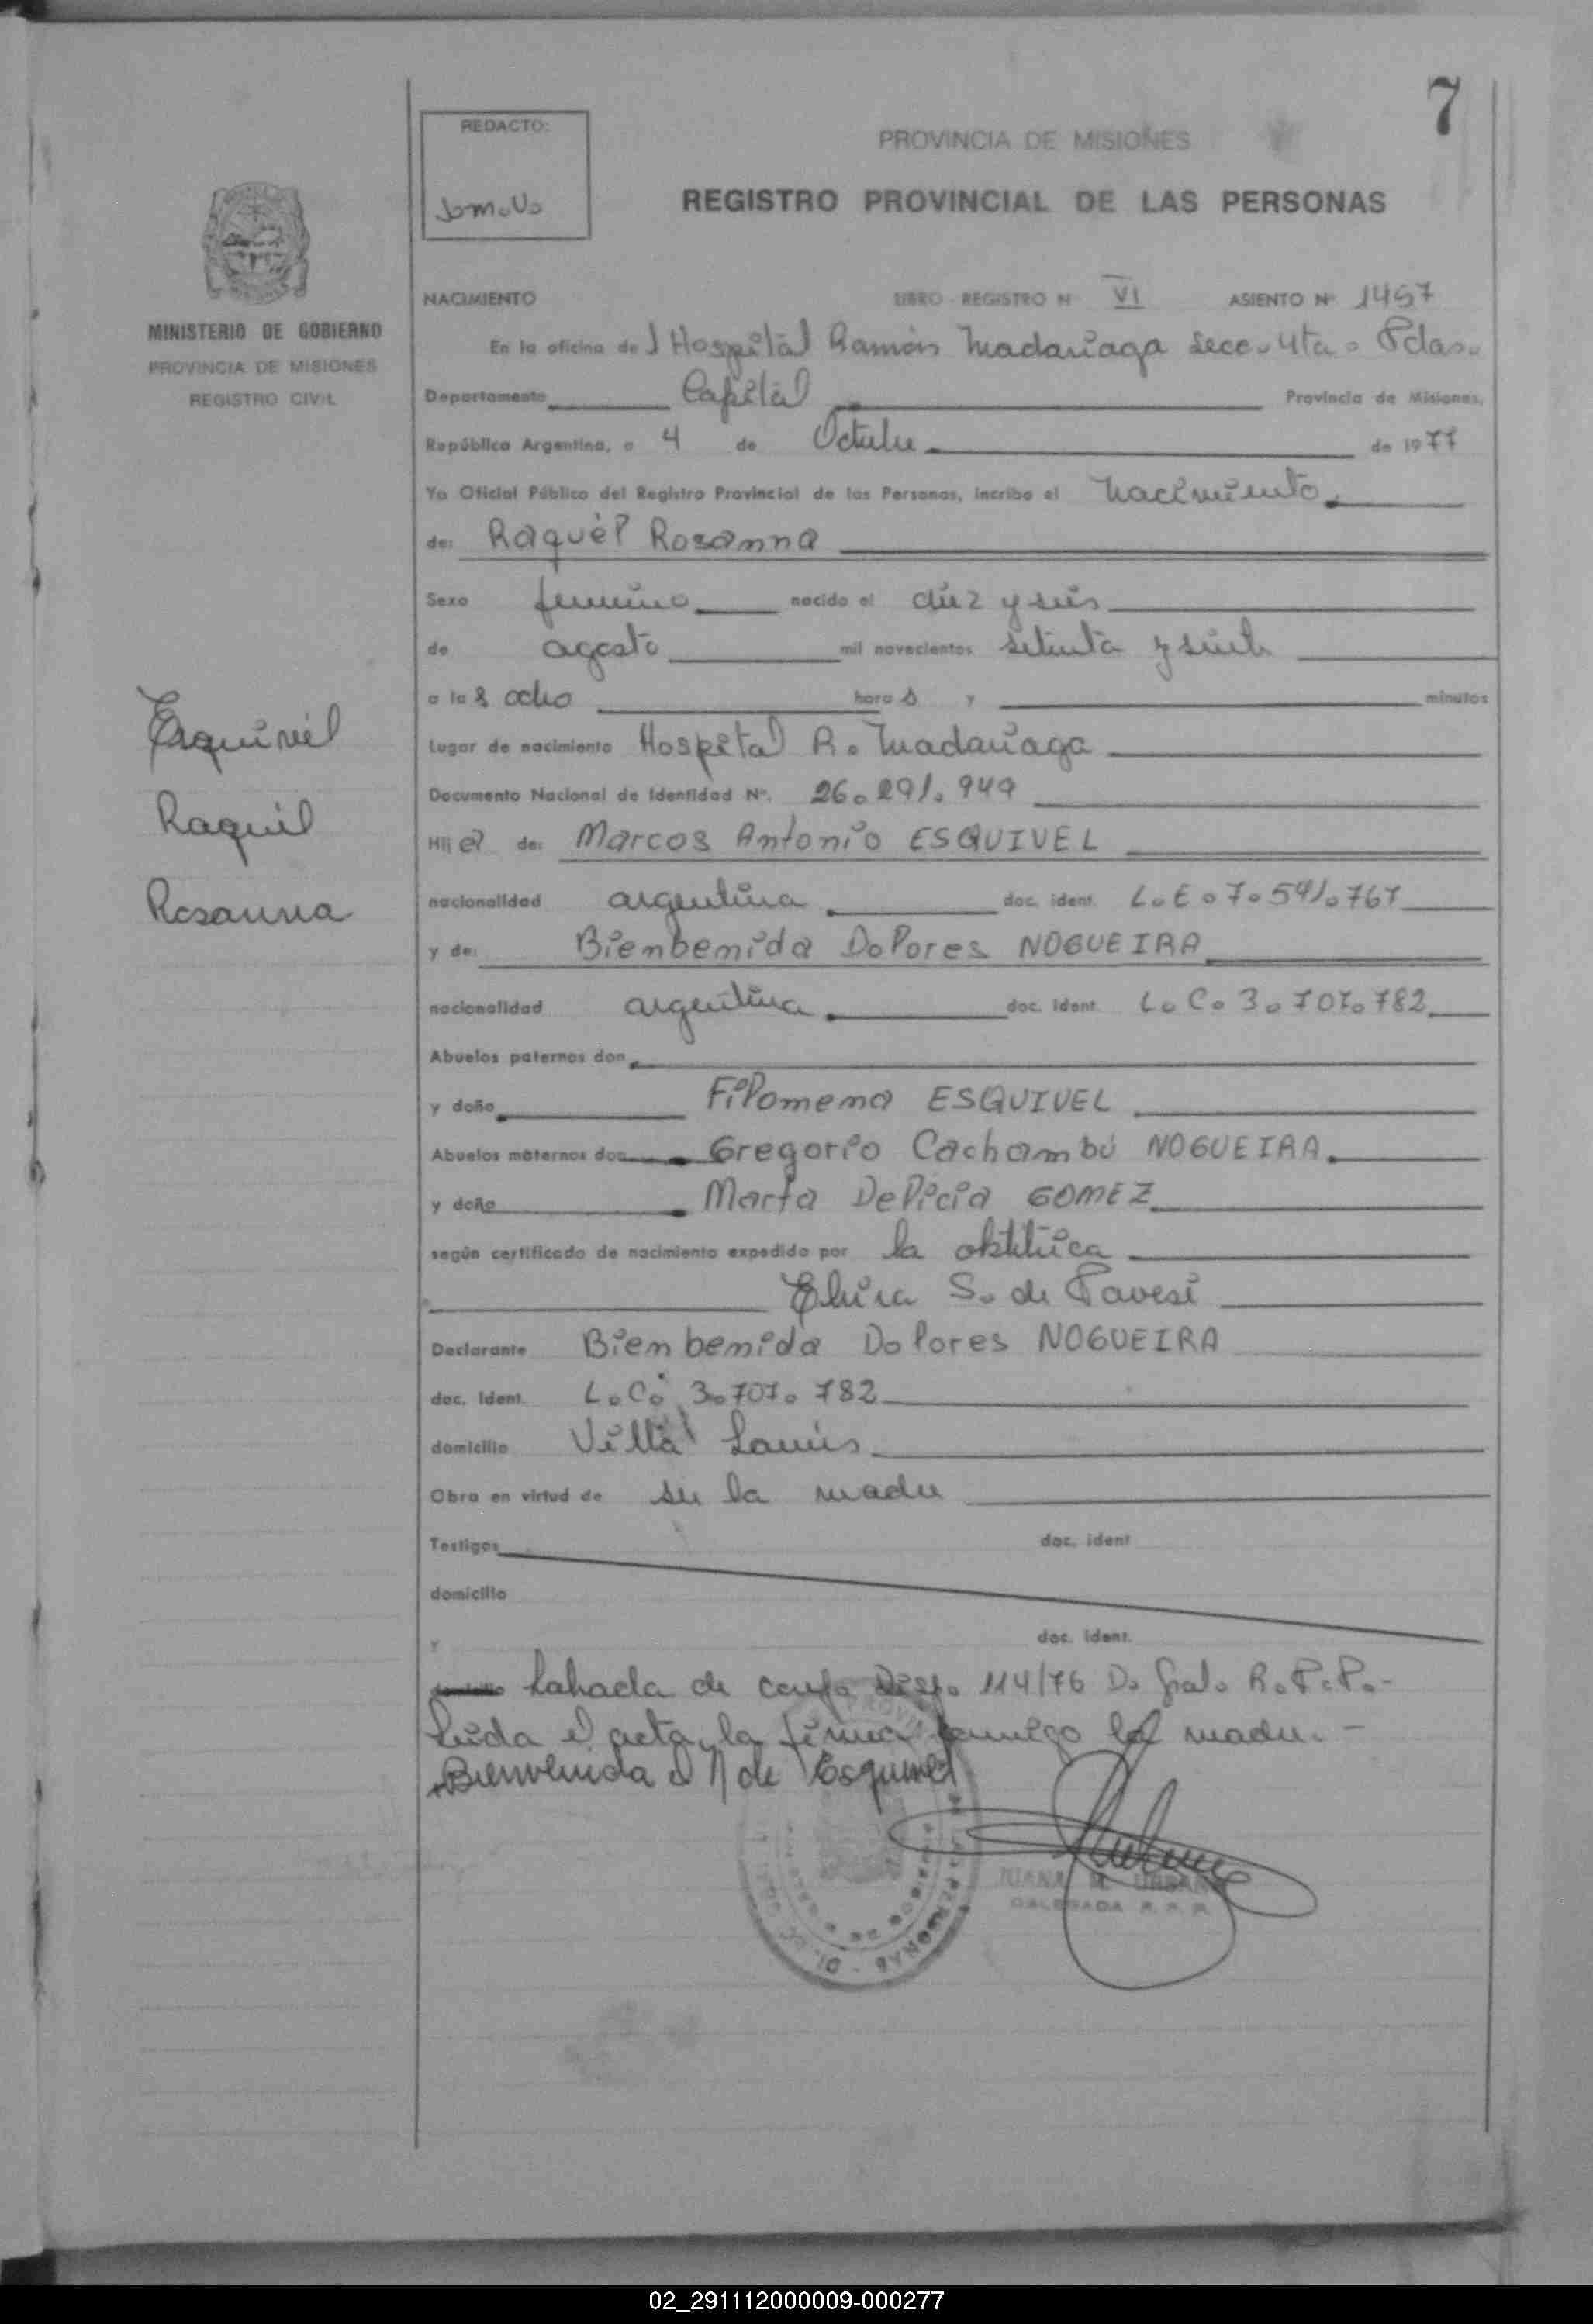 7
REDACTO:
PROVINCIA DE MISIONES
REGISTRO PROVINCIAL DE LAS PERSONAS
MINISTERIO DE GOBIERNO
PROVINCIA DE MISIONES
REGISTRO CIVIL
NACIMIENTO LIBRO - REGISTRO N° VI ASIENTO N° 1457
En la oficina del Hospital Ramón Madariaga Secc. 4ta. Pdas.
Departamento Capital Provincia de Misiones,
República Argentina, a 4 de Octubre de 1977
Yo Oficial Público del Registro Provincial de las Personas, incribo el nacimiento
de: Raquel Rosanna
Sexo femenino nacido el diez y seis
de agosto mil novecientos setenta y siete
a las ocho horas y minutos
Esquivel
Raquel
Rosanna
Lugar de nacimiento Hospital R. Madariaga
Documento Nacional de Identidad N°. 26.291.949
Hija de: Marcos Antonio ESQUIVEL
nacionalidad argentina doc. ident. L.E. 7.541.767
y de: Bienbenida Dolores NOGUEIRA
nacionalidad argentina doc. ident. L.C. 3.707.782
Abuelos paternos don
y doña Filomena ESQUIVEL
Abuelos maternos don Gregorio Cachambú NOGUEIRA
y doña Marta Delicia GOMEZ
según certificado de nacimiento expedido por la obstétrica
Elvira S. de Pavesi
Declarante Bienbenida Dolores NOGUEIRA
doc. ident. L.C. 3.707.782
domicilio Villa Lanús
Obra en virtud de ser la madre
Testigos doc. ident
domicilio
Y doc. ident.
Labrada de conf. Disp. 114/76 D. Gral. R.P.P.-
Leída el acta, la firma conmigo la madre. -
Bienvenida N de Esquivel
JUANA M. URBAN
DELEGADA R. P. P.
02_291112000009-000277